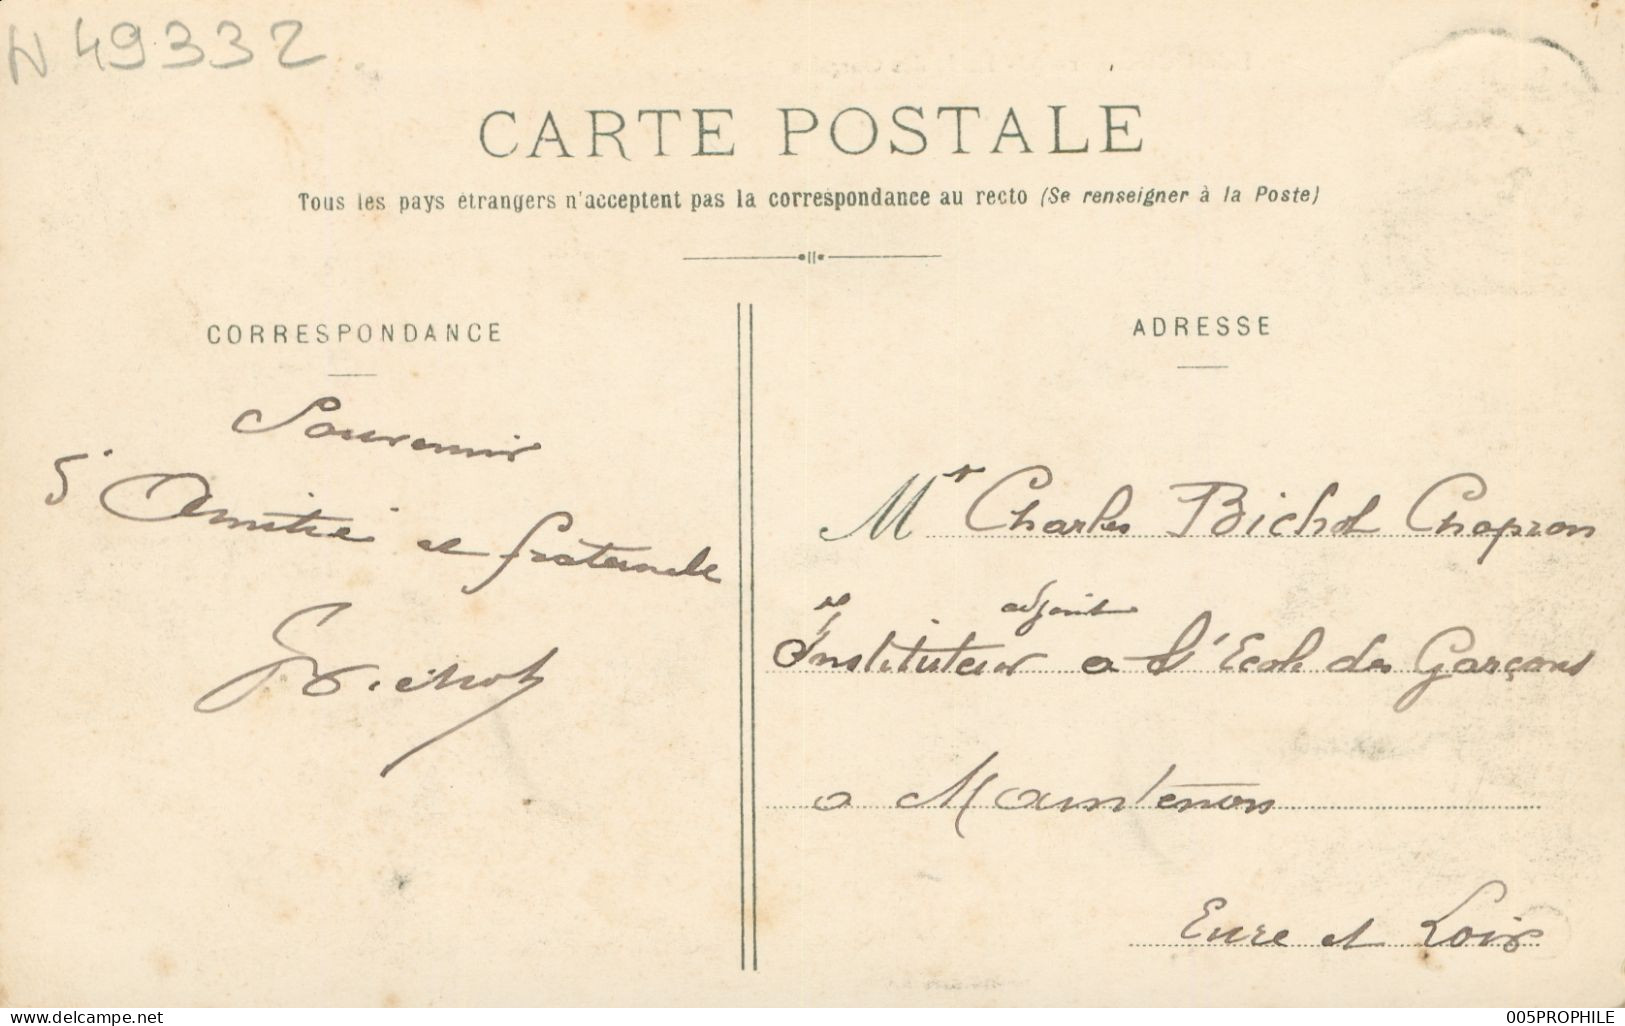 N 49332
CARTE POSTALE
Tous les pays étrangers n'acceptent pas la correspondance au recto (Se renseigner à la Poste)
CORRESPONDANCE
Souvenir
d'Amitié et fraternelle
Bichot
ADRESSE
Mr Charles Bichot Chapron
Instituteur adjoint a l'Ecole des Garçons
a Maintenon
Eure et Loir
www.delcampe.net
005PROPHILE